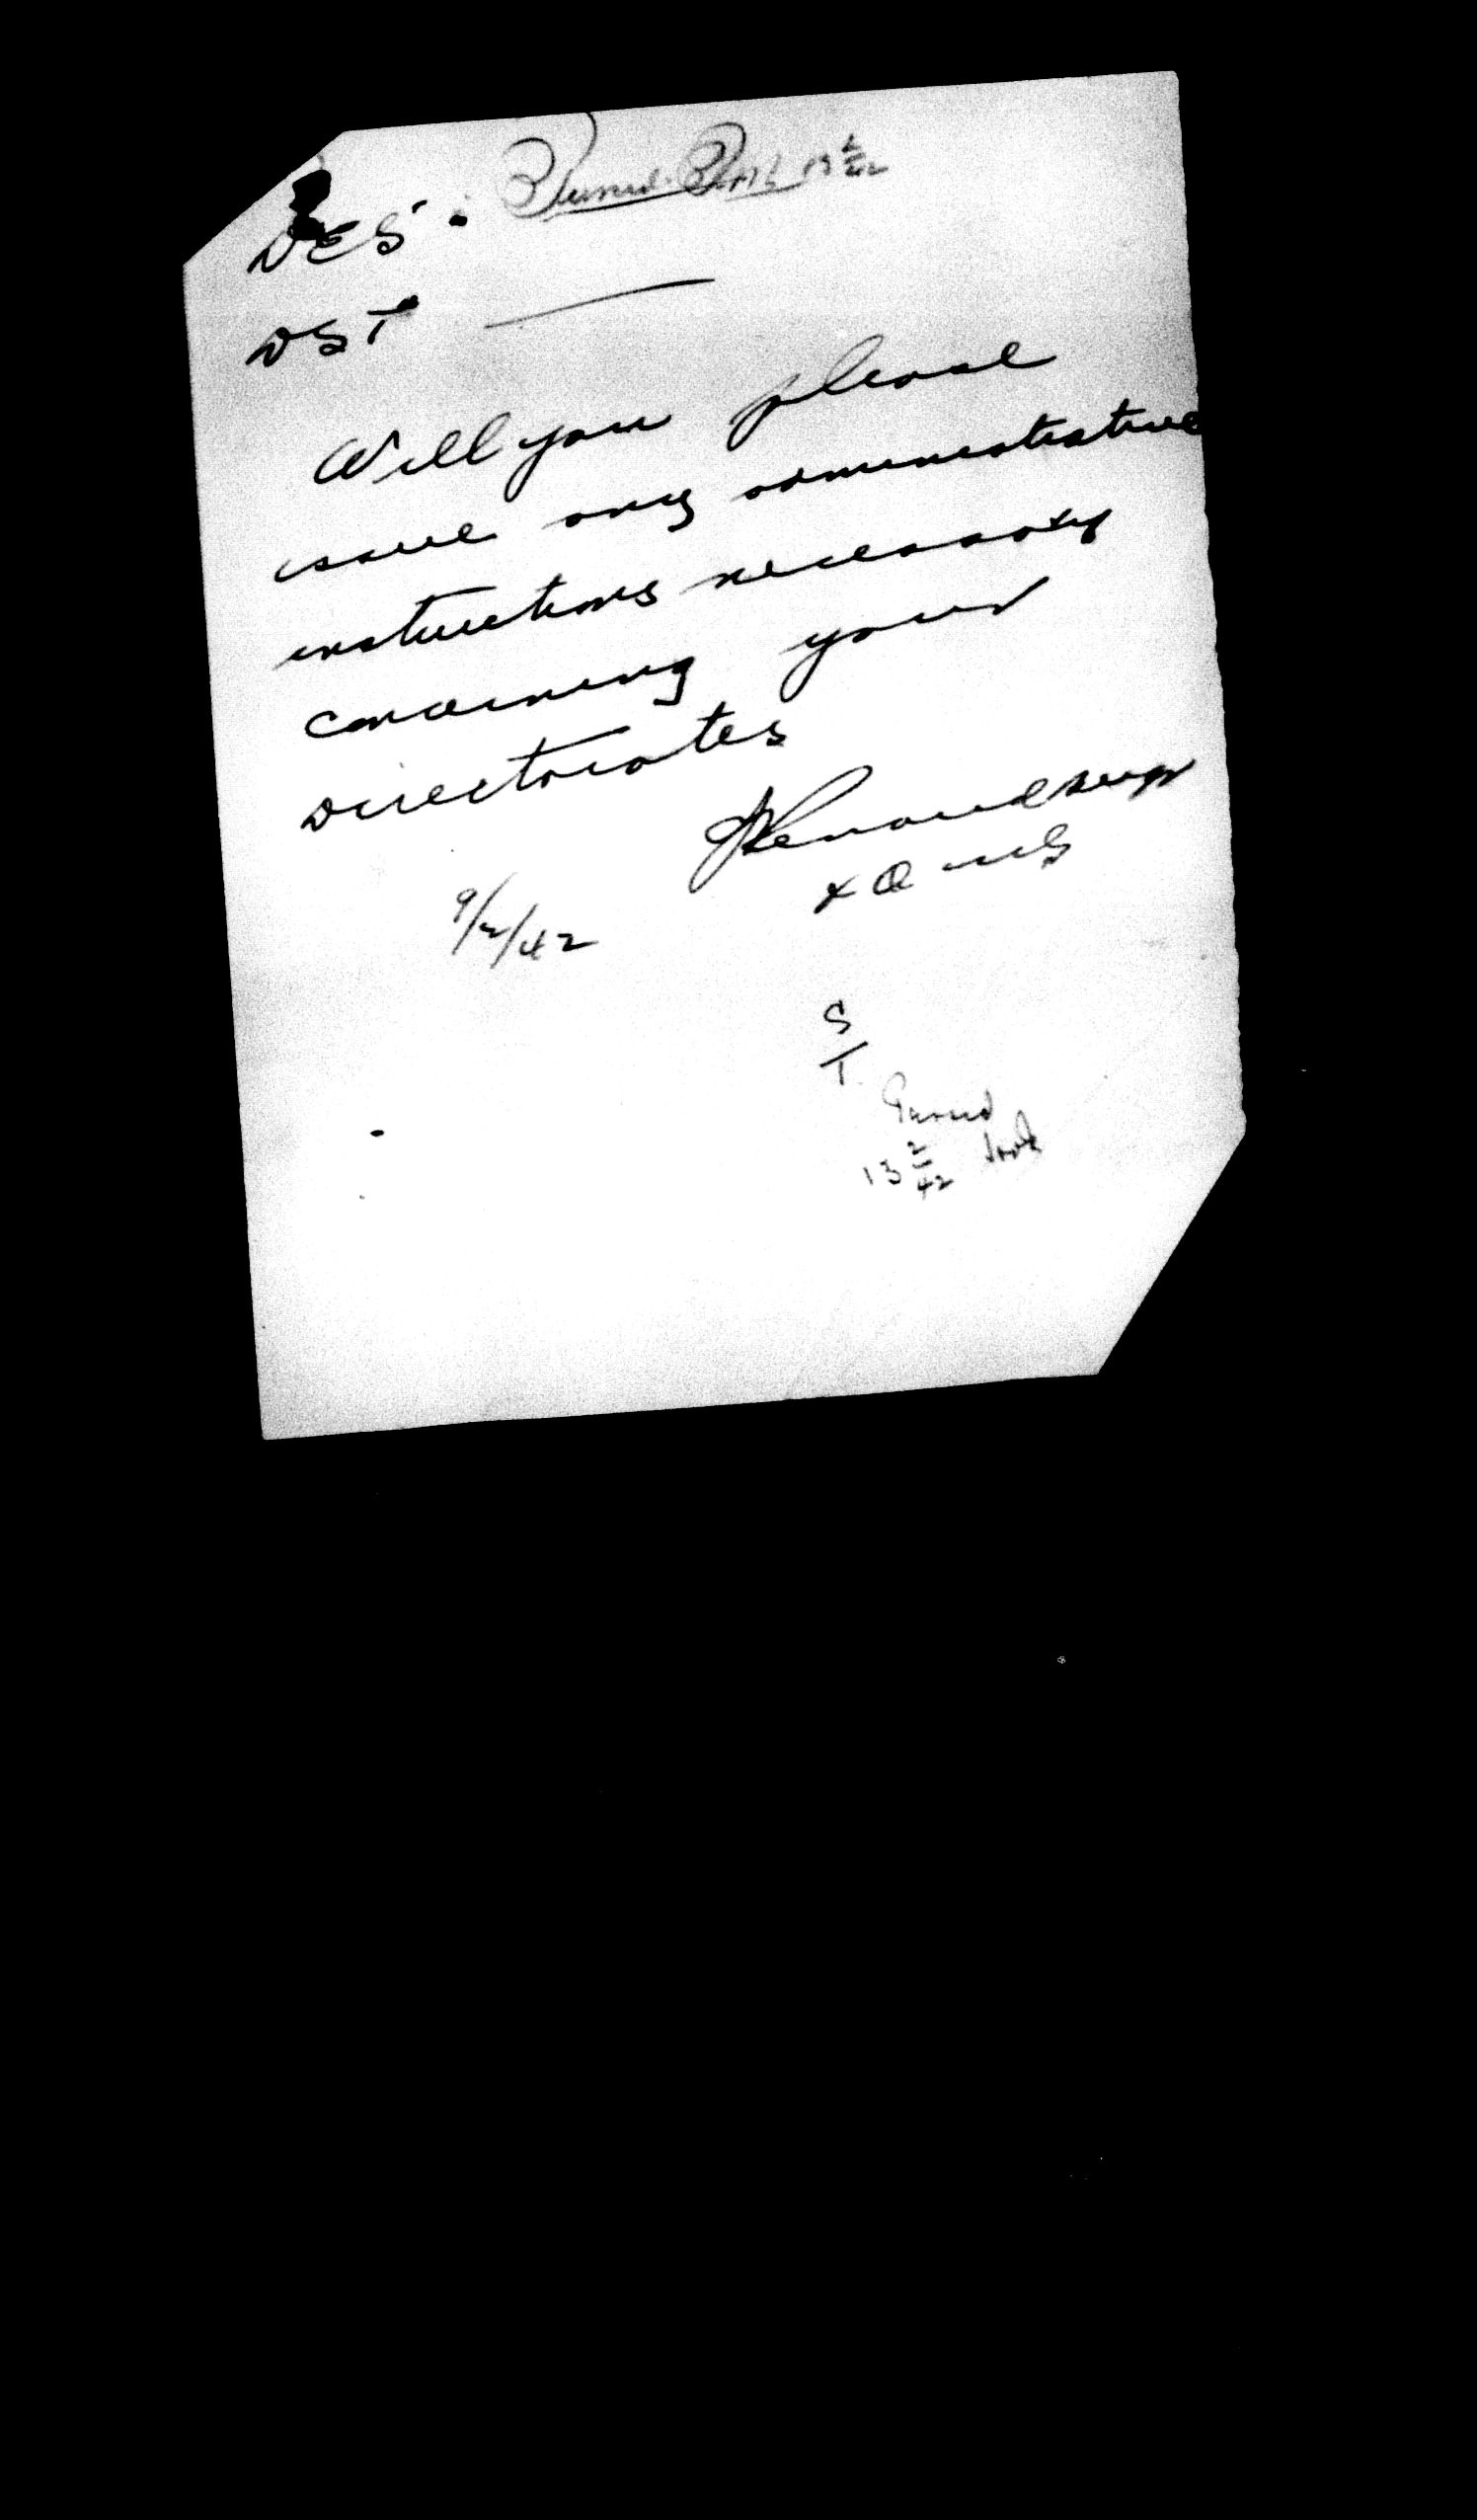 DES
13 2/42
DST
Will you please
issue any administrative
instructions necessary
concerning your
Directorates
9/2/42
S
T
13 2/42